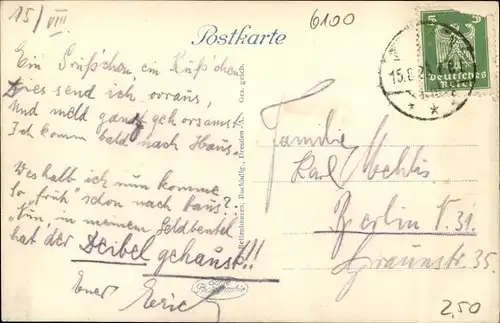 15/VIII
6100
Postkarte
5 5
Deutsches
Reich
15.8.2
Ein Grüß'chen, ein Küß'chen
Dies send ich voraus,
Und meld ganz gehorsamst:
Ich komm bald nach Haus.
Weshalb ich nun komme
So "früh" schon nach Haus?..
"Nun, in meinem Geldbeutel
hat der Deibel gehaust"!!
Euer Erich
Ges. gesch.
Dresden
Familie
Karl Mechlis
Berlin N. 31.
Graunstr. 35.
2,50